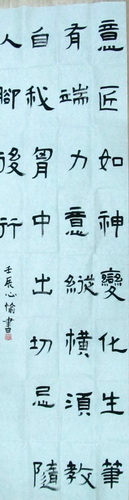 意匠如神變化生筆
有端力意縱橫須教
自我胷中出切忌隨
人腳後行
壬辰心愉書